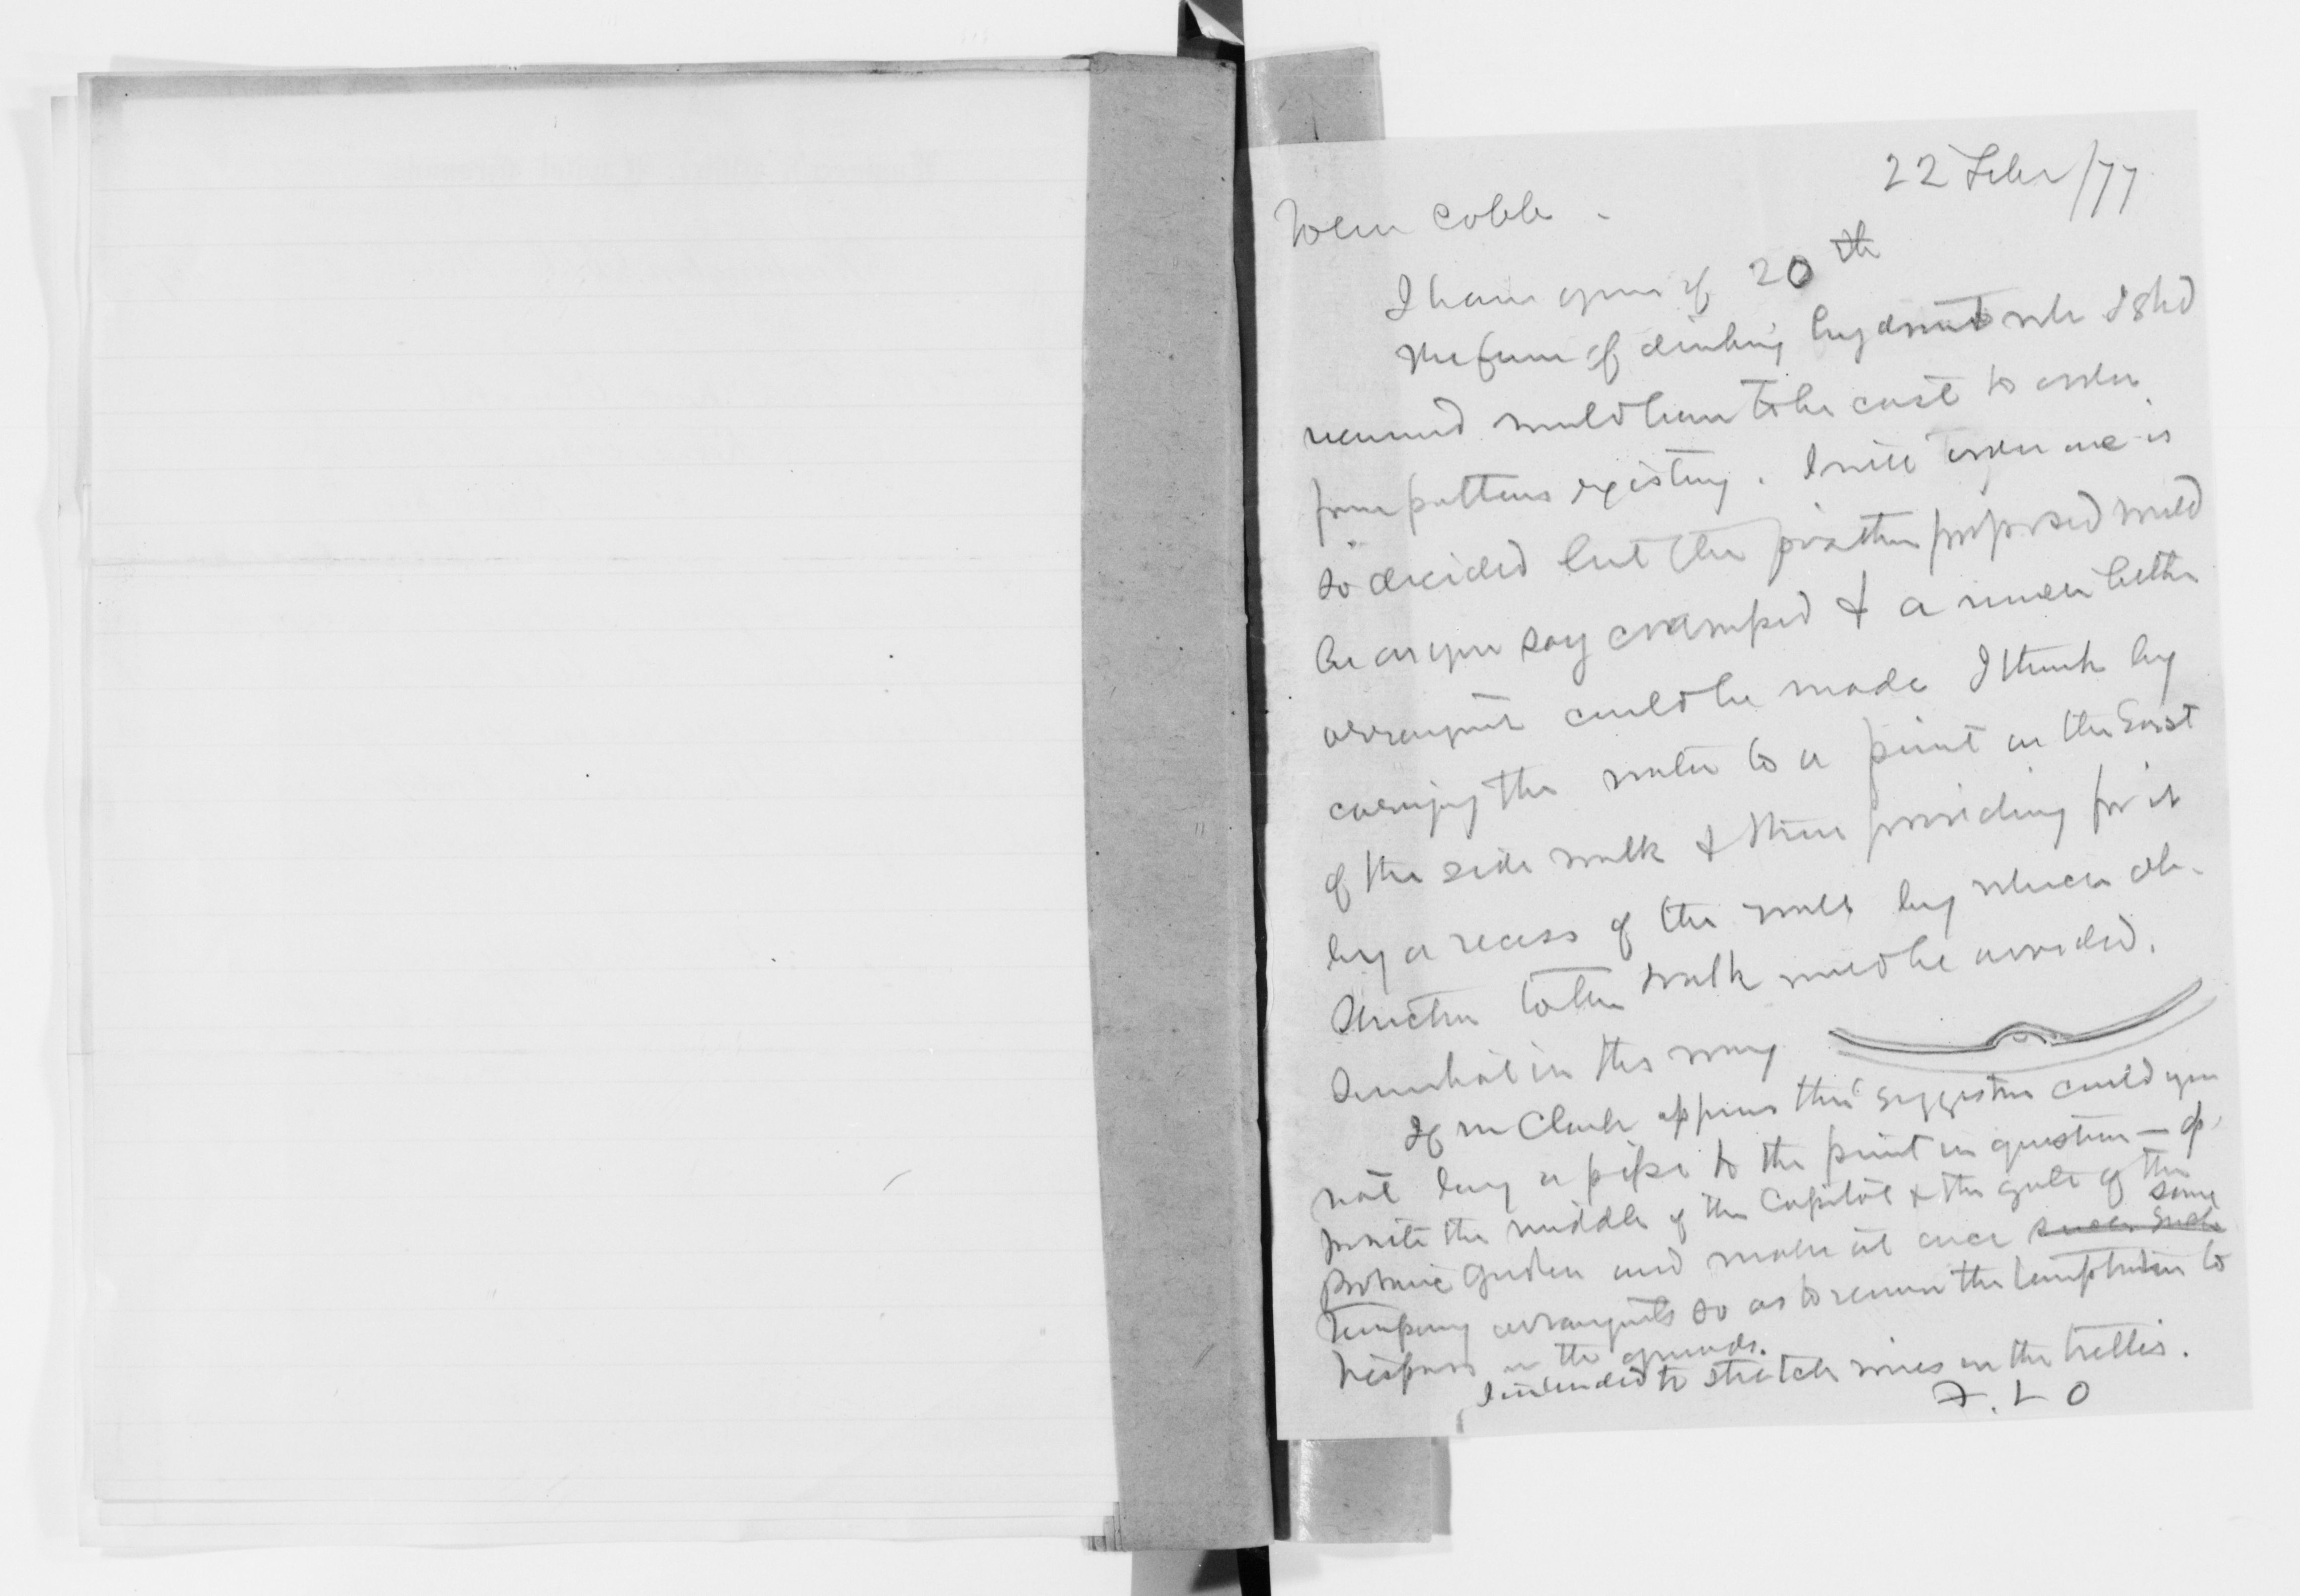 22 Feb /77
Cobb
I have yours of 20th
The form of drinking hydrant wh I shd
recmnd would have to be cast to order
from patterns existing. I will order one if
so decided but the position proposed would
be as you say cramped & a much better
arrangmt could be made I think by
carrying the water to a point on the East
of the side walk & there providing for it
by a recess of the wall by which ob-
struction to the walk would be avoided.
Somewhat in this way
If Mr Clark approves this suggestion could you
not lay a pipe to the point in question — op
posite the middle of the Capitol & the gate of the
Botanic Garden and make at once such such some
temporary arrangmts so as to remove the temptation to
trespass on the grounds.
I intended to stretch wires on the trellis.
F. L O